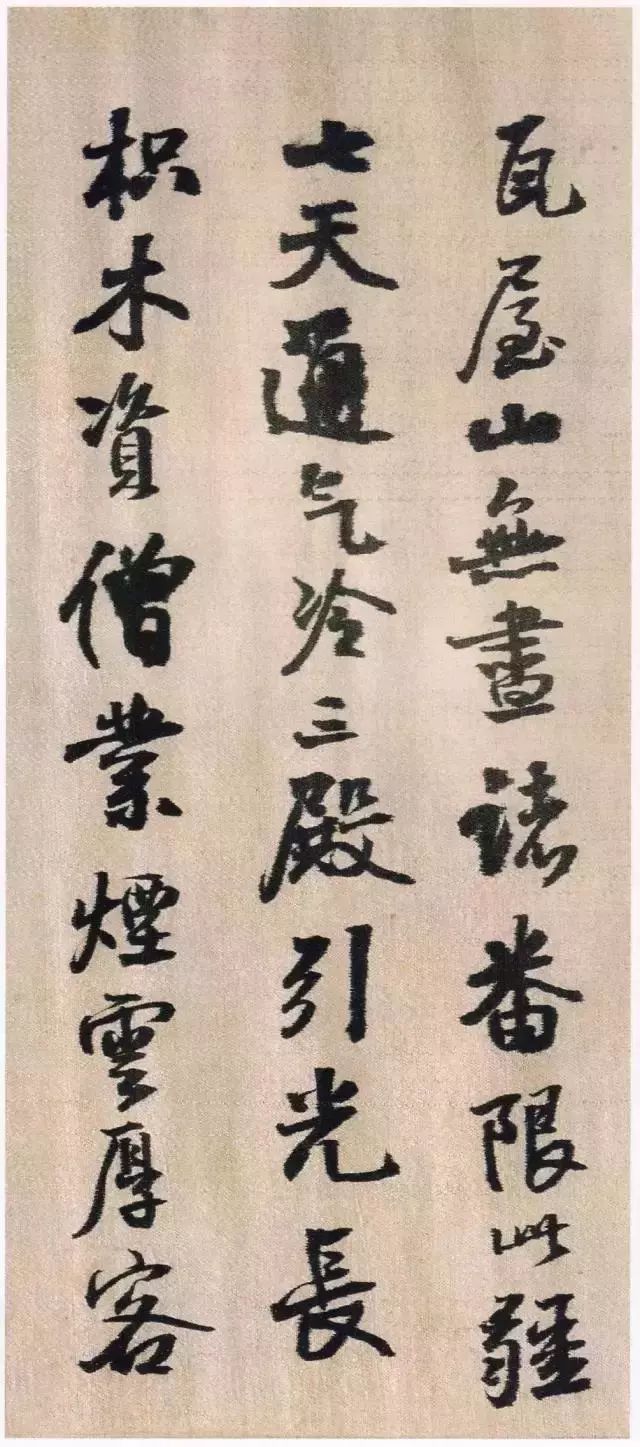 瓦屋山無盡諸番限此疆
七天通气冷三殿引光長
枳木資僧業煙雲厚客